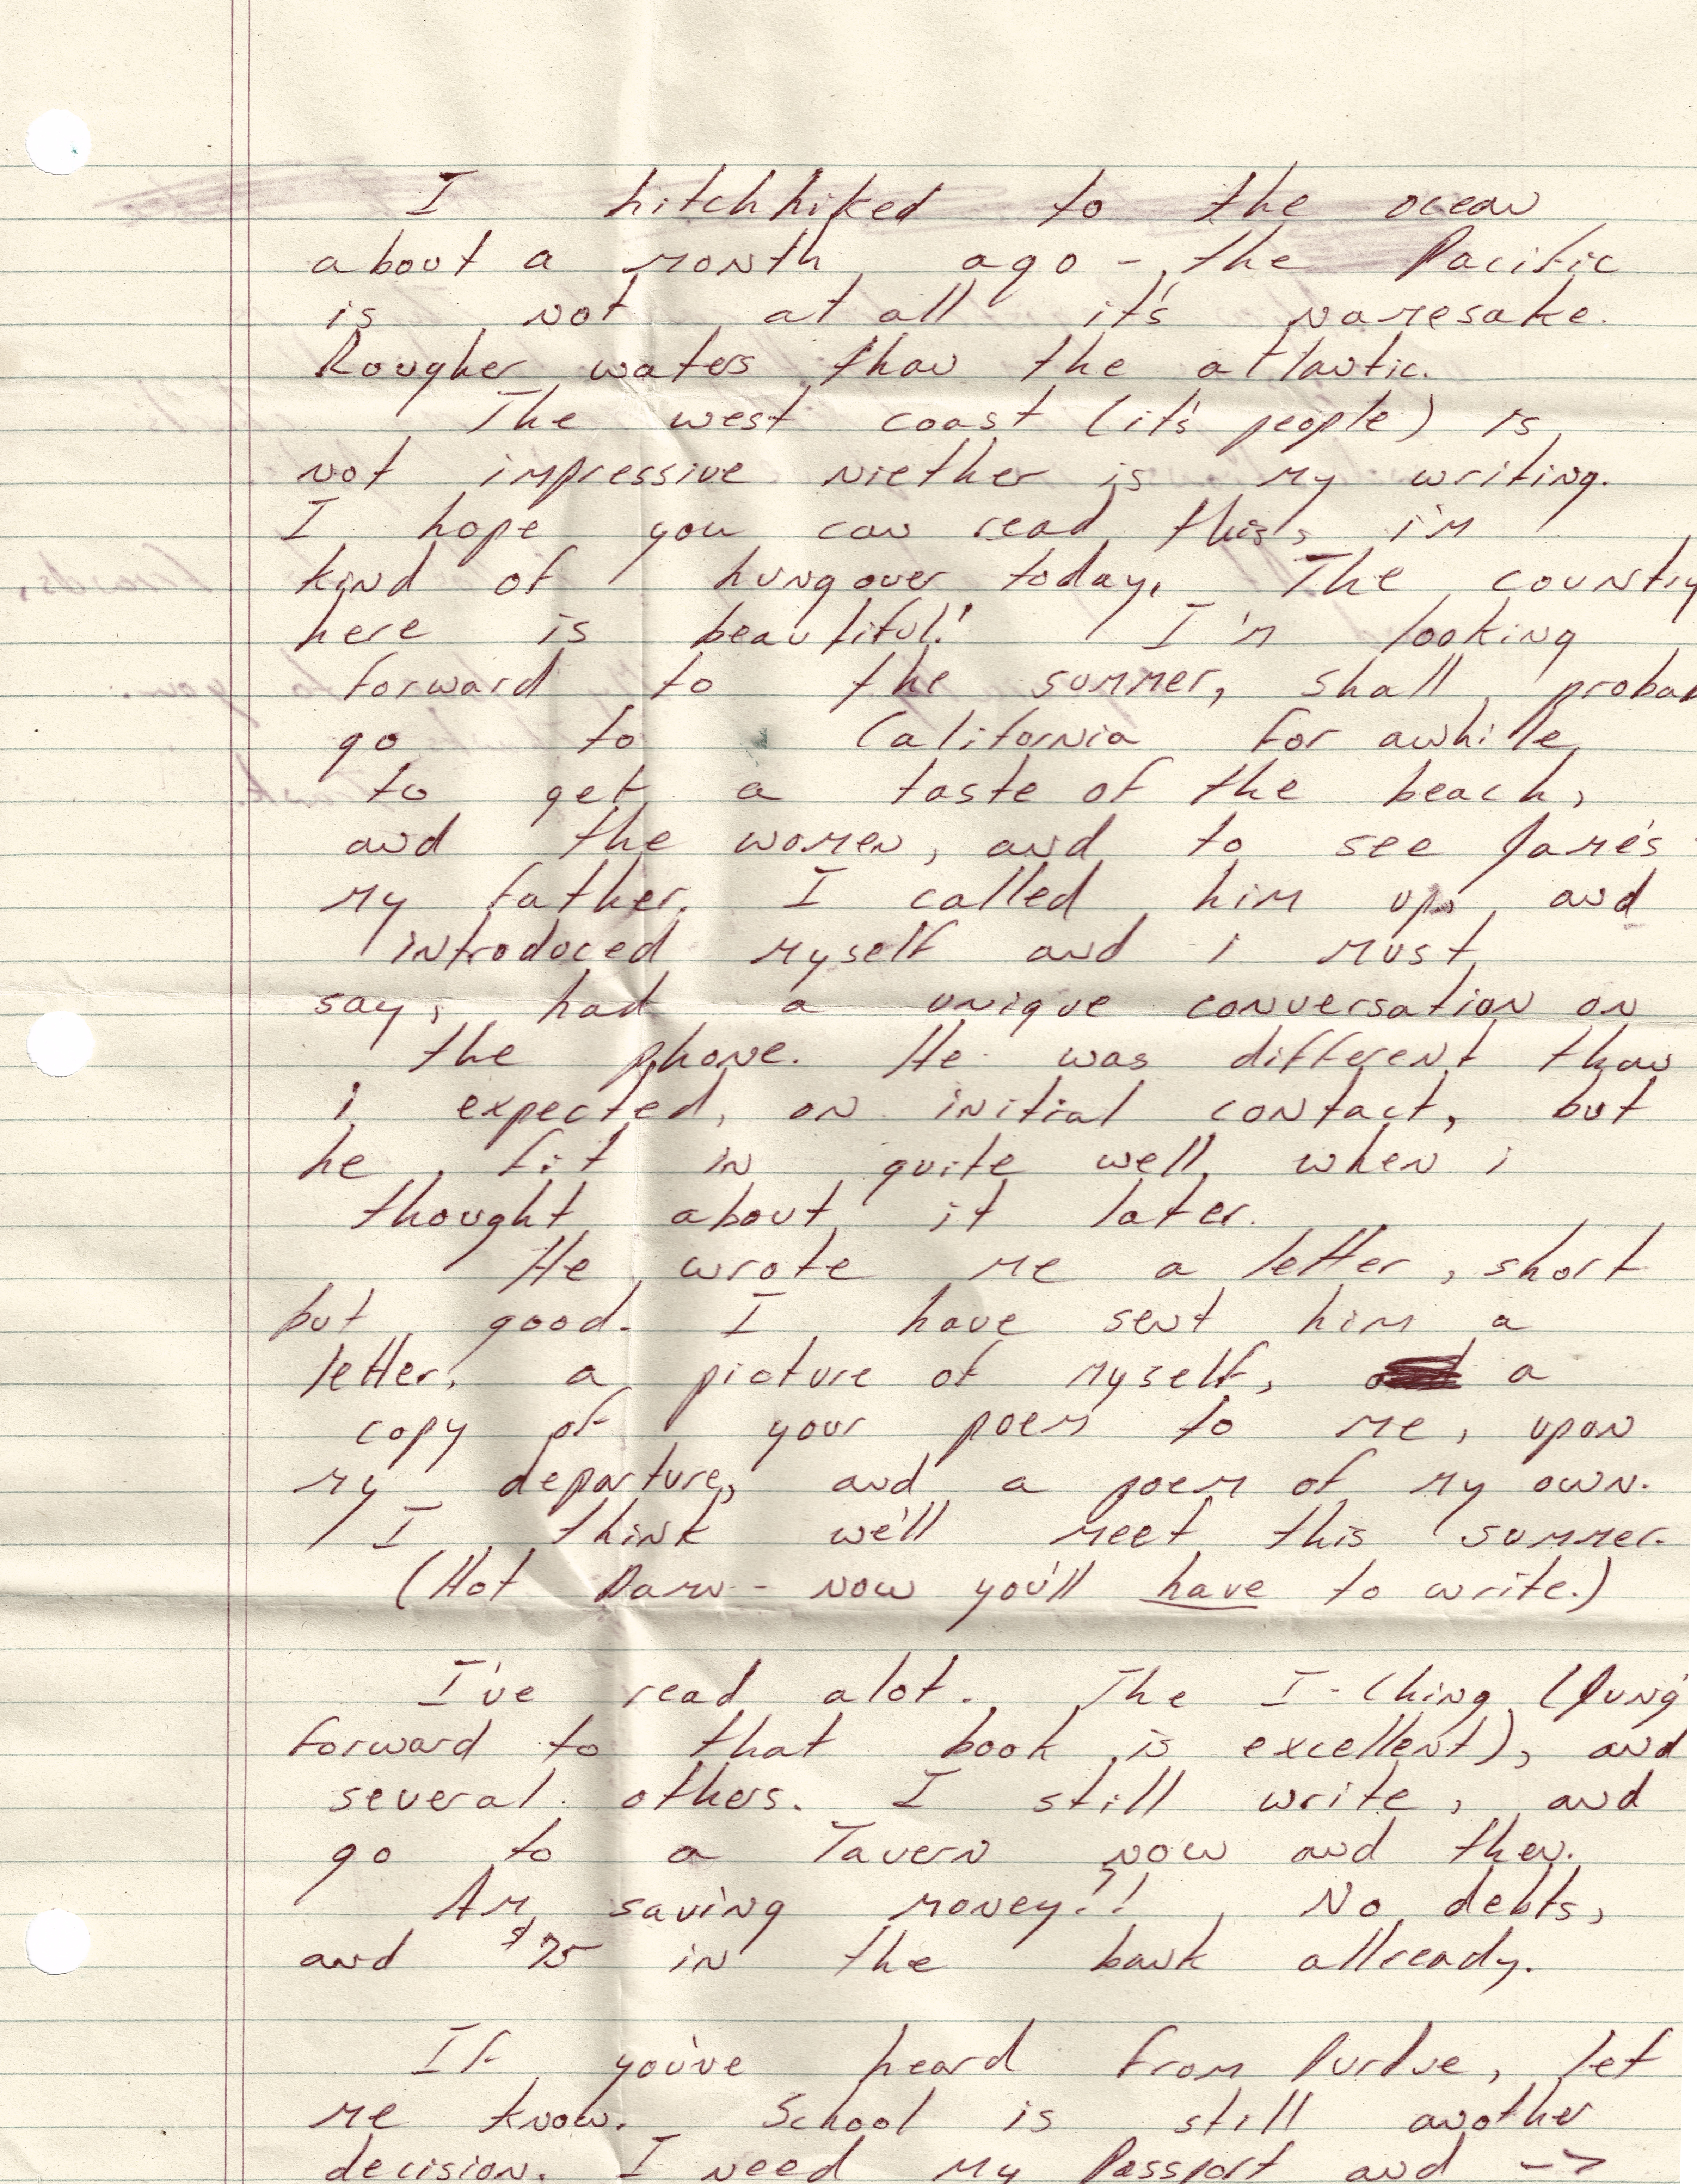 I hitchhiked to the ocean
about a month ago - the Pacific
is not at all it's namesake.
Rougher waters than the atlantic.
The west coast (it's people) is
not impressive niether is my writing.
I hope you can read this, i'm
kind of hungover today. The country
here is beautiful! I'm looking
forward to the summer, shall probab
go to California for awhile
to get a taste of the beach,
and the women, and to see Jame's
my father. I called him up, and
introduced myself and i must
say, had a unique conversation on
the phone. He was different than
i expected, on initial contact, but
he fit in quite well, when i
thought about it later.
He wrote me a letter, short
but good. I have sent him a
letter, a picture of myself, a
copy of your poem to me, upon
my departure, and a poem of my own.
I think we'll meet this summer.
(Hot Damn - now you'll have to write.)
I've read alot. The I-Ching (Jung'
forward to that book is excellent), and
several others. I still write, and
go to a Tavern now and then.
Am saving money!! No debts,
and $75 in the bank allready.
If you've heard from Purdue, let
me know. School is still another
decision. I need my Passport and ->